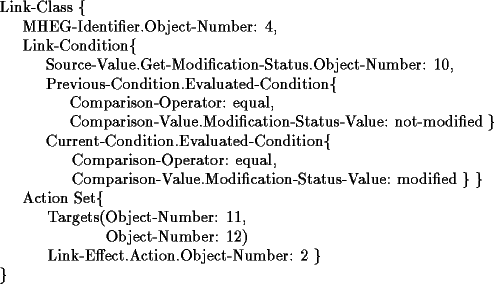 Link-Class {
MHEG-Identifier.Object-Number: 4,
Link-Condition{
Source-Value.Get-Modification-Status.Object-Number: 10,
Previous-Condition.Evaluated-Condition{
Comparison-Operator: equal,
Comparison-Value.Modification-Status-Value: not-modified }
Current-Condition.Evaluated-Condition{
Comparison-Operator: equal,
Comparison-Value.Modification-Status-Value: modified } }
Action Set{
Targets(Object-Number: 11,
Object-Number: 12)
Link-Effect.Action.Object-Number: 2 }
}